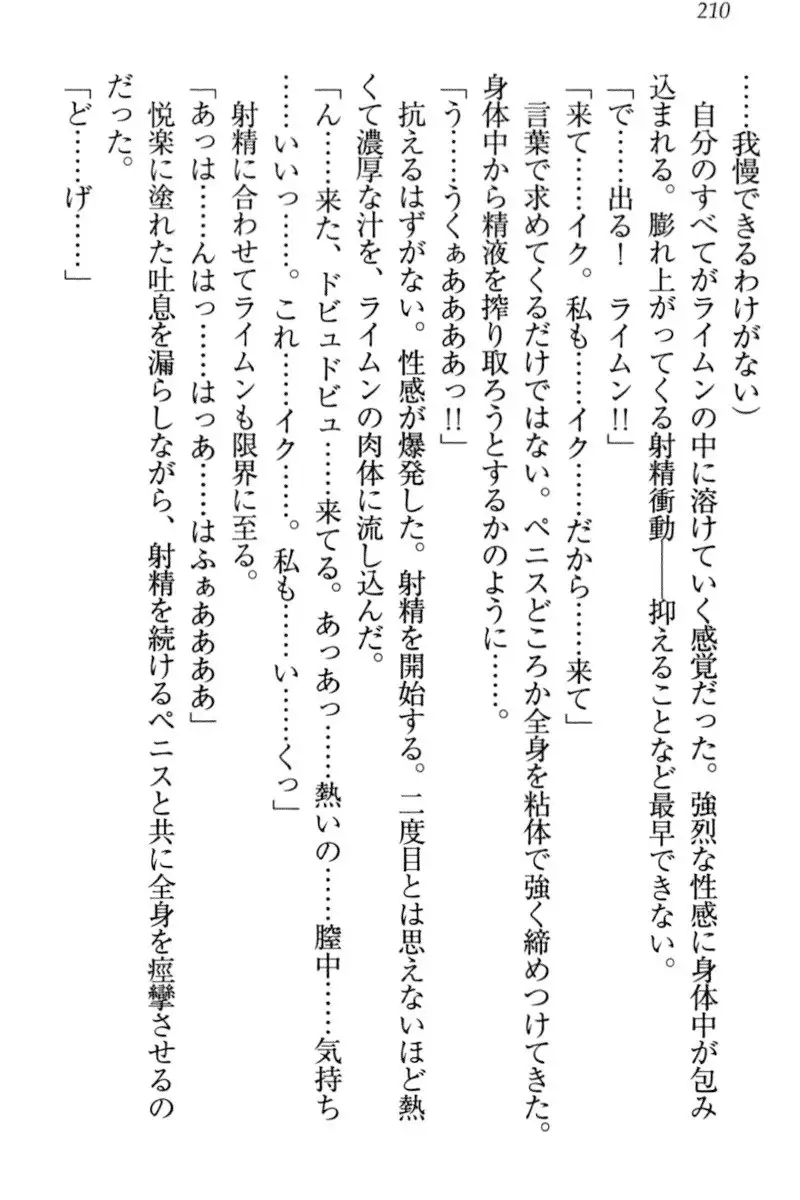 210
……我慢できるわけがない）
自分のすべてがライムンの中に溶けていく感覚だった。強烈な性感に身体中が包み
込まれる。膨れ上がってくる射精衝動――抑えることなど最早できない。
「で……出る！　ライムン!!」
「来て……イク。私も……イク……だから……来て」
言葉で求めてくるだけではない。ペニスどころか全身を粘体で強く締めつけてきた。
身体中から精液を搾り取ろうとするかのように……。
「う……うくぁああああっ!!」
抗えるはずがない。性感が爆発した。射精を開始する。二度目とは思えないほど熱
くて濃厚な汁を、ライムンの肉体に流し込んだ。
「ん……来た、ドビュドビュ……来てる。あっあっ……熱いの……膣中……気持ち
……いいっ……。これ……イク……。私も……い……くっ」
射精に合わせてライムンも限界に至る。
「あっは……んはっ……はっあ……はふぁああああ」
悦楽に塗れた吐息を漏らしながら、射精を続けるペニスと共に全身を痙攣させるの
だった。
「ど……げ……」